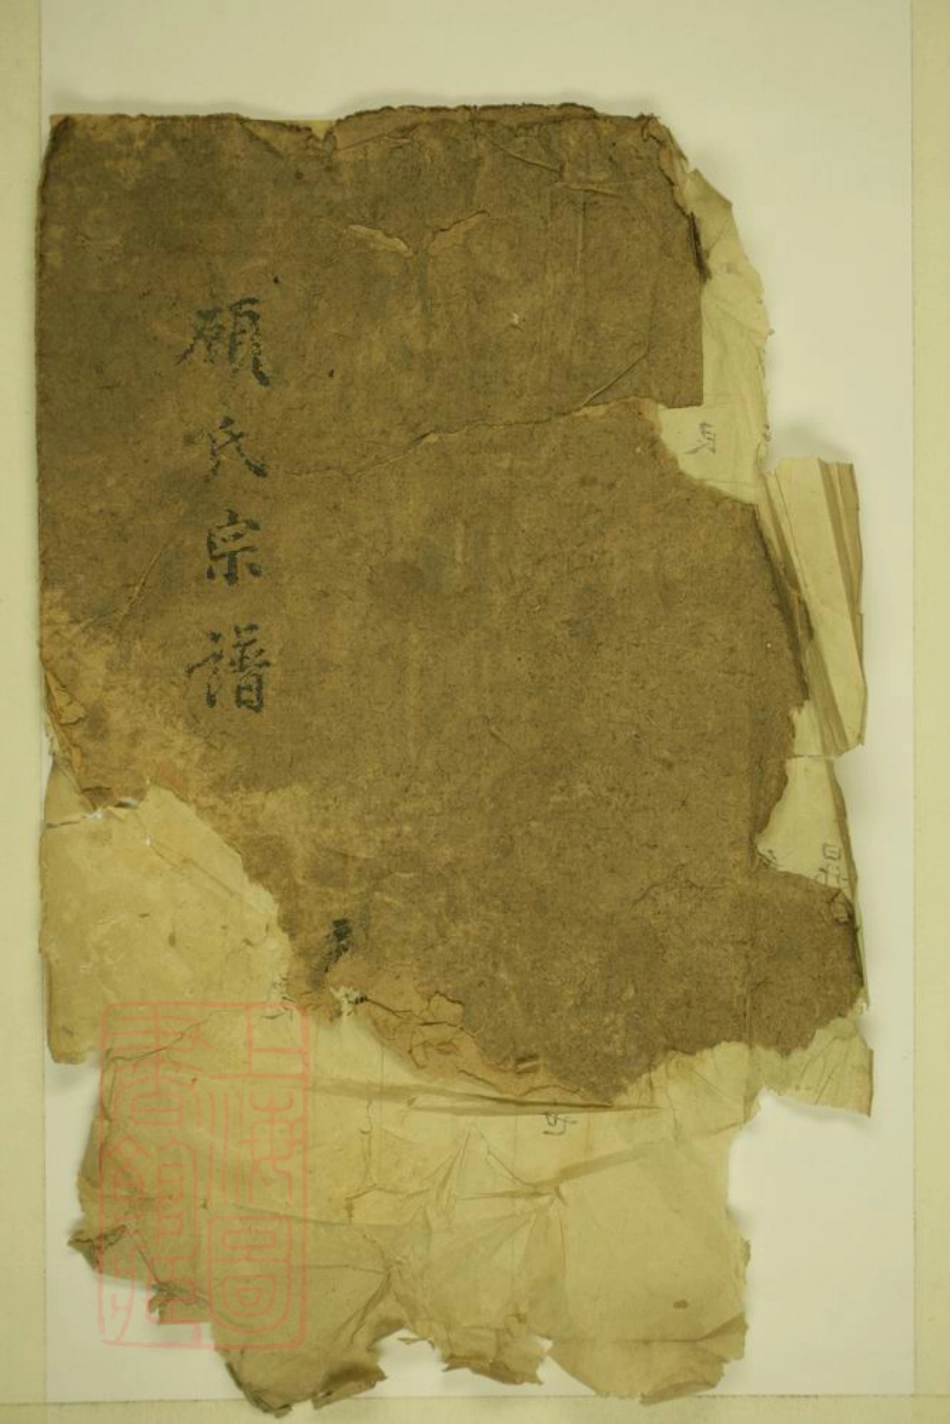 頋氏宗譜
上海圖
書館藏